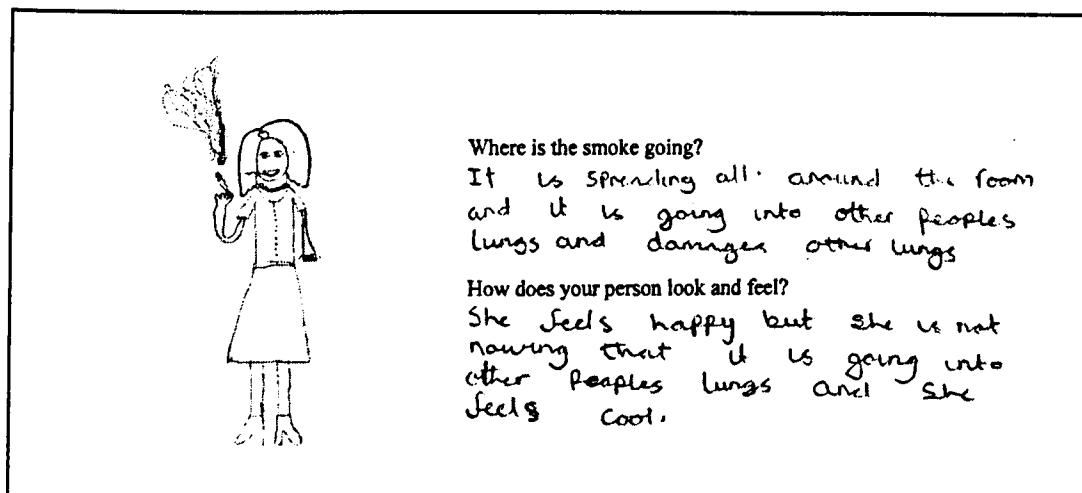 Where is the smoke going?
It is spreading all around the room
and it is going into other peoples
lungs and damages other lungs
How does your person look and feel?
She feels happy but she is not
nowing that it is going into
other peoples lungs and she
feels cool.